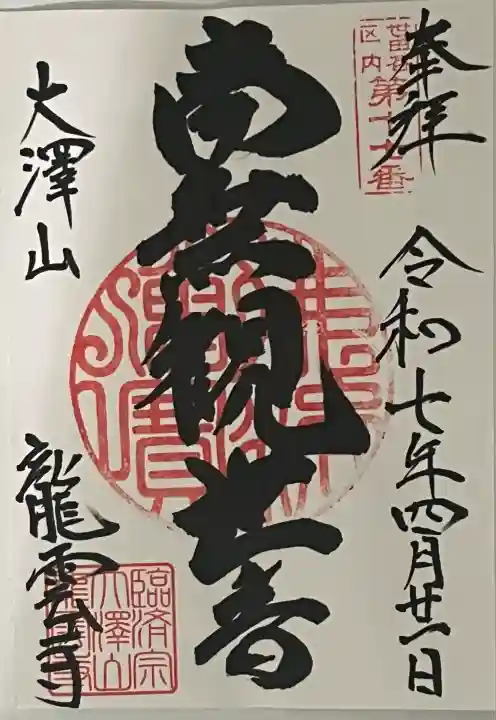 奉拝
令和七年四月廿一日
世田谷
区内
第十七番
南無観世音
大澤山
龍雲寺
臨済宗
大澤山
龍雲寺